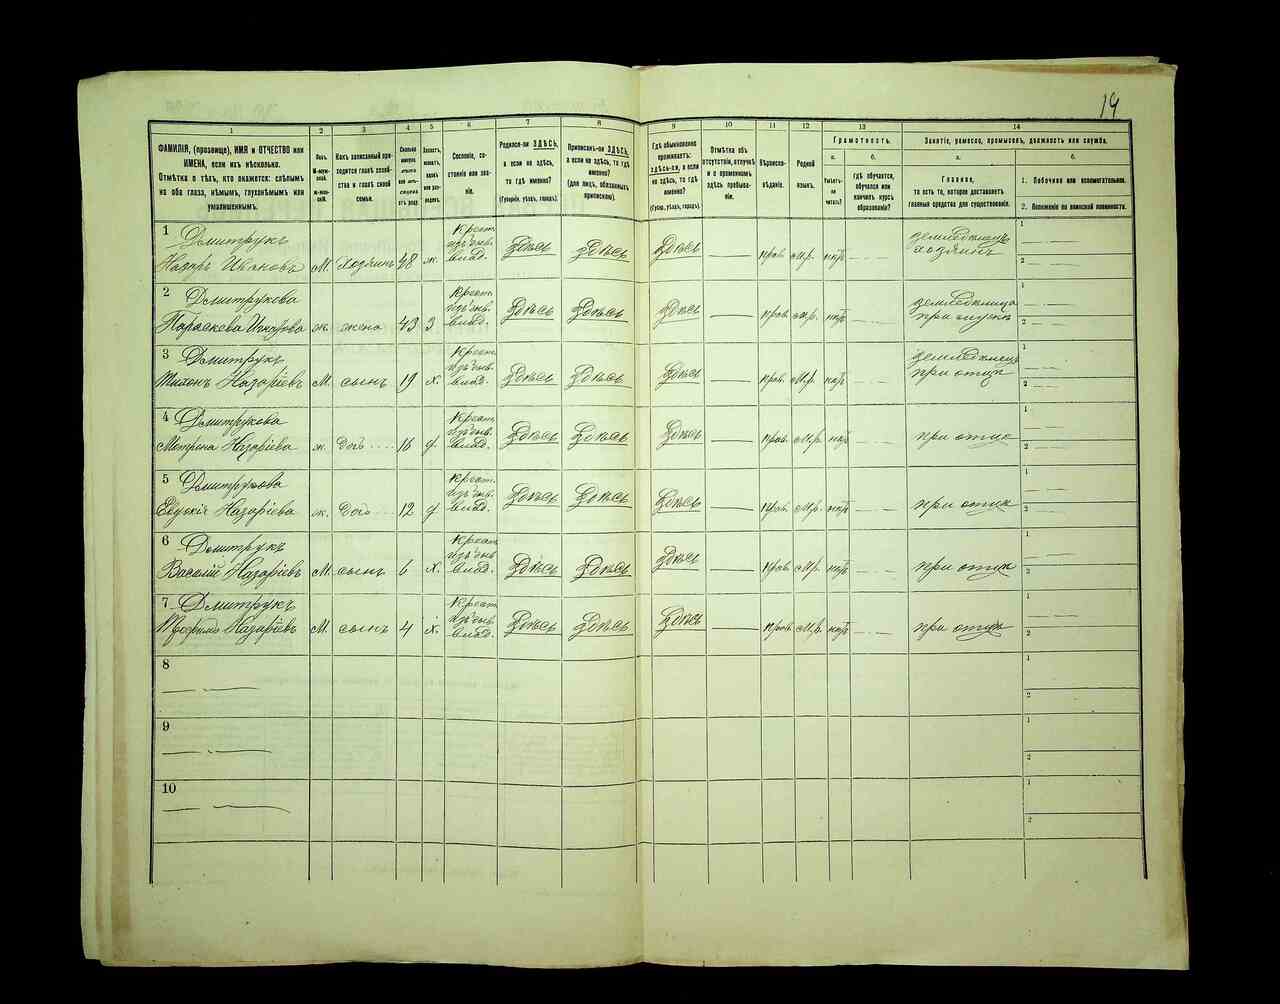 14
1
2
3
4
5
6
7
8
9
10
11
12
13
14
ФАМИЛІЯ, (прозвище), ИМЯ и ОТЧЕСТВО или
ИМЕНА, если ихъ нѣсколько.
Отмѣтка о тѣхъ, кто окажется: слѣпымъ
на оба глаза, нѣмымъ, глухонѣмымъ или
умалишеннымъ.
Полъ.
М-мужской.
Ж-женскій.
Какъ записанный приходится
главѣ хозяйства
и главѣ своей
семьи.
Сословіе, состояніе
или званіе.
Родился-ли ЗДѢСЬ,
а если не здѣсь,
то гдѣ именно?
(Губернія, уѣздъ, городъ).
Приписанъ-ли ЗДѢСЬ,
а если не здѣсь, то гдѣ
именно?
(для лицъ, обязанныхъ
припискою).
Гдѣ обыкновенно
проживаетъ:
здѣсь-ли, а если
не здѣсь, то гдѣ
именно?
(Губер., уѣздъ, городъ).
Отмѣтка объ
отсутствіи, отлучкѣ
и о временномъ
здѣсь пребываніи.
Вѣроисповѣданіе.
Родной
языкъ.
Грамотность.
а.
Умѣетъ-ли
читать?
б.
Гдѣ обучается,
обучался или
кончилъ курсъ
образованія?
Занятіе, ремесло, промыселъ, должность или служба.
а.
Главное,
то есть то, которое доставляетъ
главныя средства для существованія.
б.
1. Побочное или вспомогательное.
2. Положеніе по воинской повинности.
1 Дмитрукъ
Назаръ Ивановъ М. хозяинъ 48 ж. Крест. изъ быв. влад. Здѣсь Здѣсь Здѣсь прав. м.р. нѣтъ земледѣлецъ хозяинъ
2 Дмитрукова
Параскева ж. жена 43 з Крест. изъ быв. влад. Здѣсь Здѣсь Здѣсь прав. м.р. нѣтъ при мужѣ
3 Дмитрукъ
Тихонъ Назаріевъ М. сынъ 19 х. Крест. изъ быв. влад. Здѣсь Здѣсь Здѣсь прав. м.р. нѣтъ земледѣлецъ при отцѣ
4 Дмитрукова
Матрена Назаріева ж. доч 16 д. Крест. изъ быв. влад. Здѣсь Здѣсь Здѣсь прав. м.р. нѣтъ при отцѣ
5 Дмитрукова
Назаріева ж. доч 12 д Крест. изъ быв. влад. Здѣсь Здѣсь Здѣсь прав. м.р. нѣтъ при отцѣ
6 Дмитрукъ
Василій Назаріевъ М. сынъ 6 х. Крест. изъ быв. влад. Здѣсь Здѣсь Здѣсь прав. м.р. нѣтъ при отцѣ
7 Дмитрукъ
Назаріевъ М. сынъ 4 х. Крест. изъ быв. влад. Здѣсь Здѣсь Здѣсь прав. м.р. нѣтъ при отцѣ
8
9
10